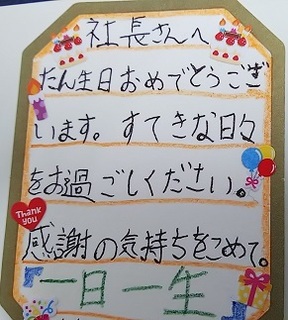 社長さんへ
たん生日おめでとうござ
います。すてきな日々
をお過ごしください。
Thank you
感謝の気持ちをこめて。
一日一生